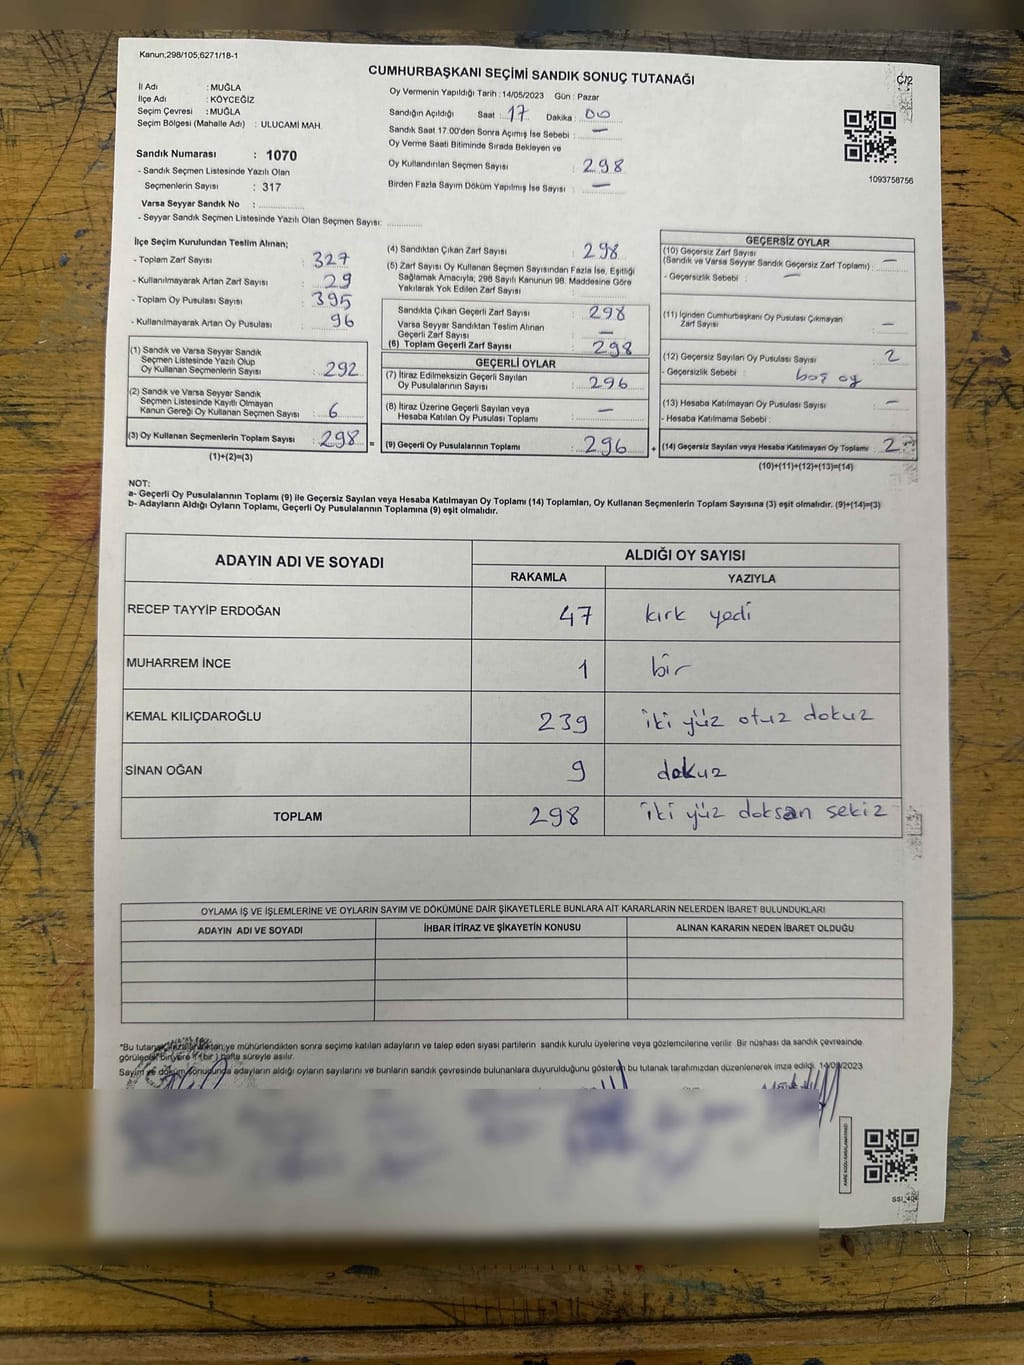 Kanun;298/105;6271/18-1
Ç/2
CUMHURBAŞKANI SEÇİMİ SANDIK SONUÇ TUTANAĞI
İl Adı : MUĞLA
İlçe Adı : KÖYCEĞİZ
Seçim Çevresi : MUĞLA
Seçim Bölgesi (Mahalle Adı) : ULUCAMİ MAH.
Sandık Numarası : 1070
- Sandık Seçmen Listesinde Yazılı Olan
Seçmenlerin Sayısı : 317
Varsa Seyyar Sandık No :
- Seyyar Sandık Seçmen Listesinde Yazılı Olan Seçmen Sayısı:
Oy Vermenin Yapıldığı Tarih : 14/05/2023 Gün : Pazar
Sandığın Açıldığı Saat : 17 Dakika : 00
Sandık Saat 17:00'den Sonra Açımış İse Sebebi : —
Oy Verme Saati Bitiminde Sırada Bekleyen ve
Oy Kullandırılan Seçmen Sayısı : 298
Birden Fazla Sayım Döküm Yapılmış İse Sayısı : —
1093758756
İlçe Seçim Kurulundan Teslim Alınan;
- Toplam Zarf Sayısı : 327
- Kullanılmayarak Artan Zarf Sayısı : 29
- Toplam Oy Pusulası Sayısı : 395
- Kullanılmayarak Artan Oy Pusulası : 96
(1) Sandık ve Varsa Seyyar Sandık
Seçmen Listesinde Yazılı Olup
Oy Kullanan Seçmenlerin Sayısı : 292
(2) Sandık ve Varsa Seyyar Sandık
Seçmen Listesinde Kayıtlı Olmayan
Kanun Gereği Oy Kullanan Seçmen Sayısı : 6
(3) Oy Kullanan Seçmenlerin Toplam Sayısı : 298 =
(1)+(2)=(3)
(4) Sandıktan Çıkan Zarf Sayısı : 298
(5) Zarf Sayısı Oy Kullanan Seçmen Sayısından Fazla İse, Eşitliği
Sağlamak Amacıyla; 298 Sayılı Kanunun 98. Maddesine Göre
Yakılarak Yok Edilen Zarf Sayısı :
Sandıkta Çıkan Geçerli Zarf Sayısı : 298
Varsa Seyyar Sandıktan Teslim Alınan
Geçerli Zarf Sayısı : —
(6) Toplam Geçerli Zarf Sayısı : 298
GEÇERLİ OYLAR
(7) İtiraz Edilmeksizin Geçerli Sayılan
Oy Pusulalarının Sayısı : 296
(8) İtiraz Üzerine Geçerli Sayılan veya
Hesaba Katılan Oy Pusulası Toplamı : —
(9) Geçerli Oy Pusulalarının Toplamı : 296 +
GEÇERSİZ OYLAR
(10) Geçersiz Zarf Sayısı
(Sandık ve Varsa Seyyar Sandık Geçersiz Zarf Toplamı) : —
- Geçersizlik Sebebi : —
(11) İçinden Cumhurbaşkanı Oy Pusulası Çıkmayan
Zarf Sayısı : —
(12) Geçersiz Sayılan Oy Pusulası Sayısı : 2
- Geçersizlik Sebebi : boş oy
(13) Hesaba Katılmayan Oy Pusulası Sayısı : —
- Hesaba Katılmama Sebebi :
(14) Geçersiz Sayılan veya Hesaba Katılmayan Oy Toplamı : 2
(10)+(11)+(12)+(13)=(14)
NOT:
a- Geçerli Oy Pusulalarının Toplamı (9) ile Geçersiz Sayılan veya Hesaba Katılmayan Oy Toplamı (14) Toplamları, Oy Kullanan Seçmenlerin Toplam Sayısına (3) eşit olmalıdır. (9)+(14)=(3)
b- Adayların Aldığı Oyların Toplamı, Geçerli Oy Pusulalarının Toplamına (9) eşit olmalıdır.
ADAYIN ADI VE SOYADI ALDIĞI OY SAYISI
RAKAMLA YAZIYLA
RECEP TAYYİP ERDOĞAN 47 kırk yedi
MUHARREM İNCE 1 bir
KEMAL KILIÇDAROĞLU 239 iki yüz otuz dokuz
SİNAN OĞAN 9 dokuz
TOPLAM 298 iki yüz doksan sekiz
OYLAMA İŞ VE İŞLEMLERİNE VE OYLARIN SAYIM VE DÖKÜMÜNE DAİR ŞİKAYETLERLE BUNLARA AİT KARARLARIN NELERDEN İBARET BULUNDUKLARI
ADAYIN ADI VE SOYADI İHBAR İTİRAZ VE ŞİKAYETİN KONUSU ALINAN KARARIN NEDEN İBARET OLDUĞU
*Bu tutanak ve mühürlendikten sonra seçime katılan adayların ve talep eden siyasi partilerin sandık kurulu üyelerine veya gözlemcilerine verilir. Bir nüshası da sandık çevresinde
görülecek bir yere 1 (bir) hafta süreyle asılır.
Sayım ve döküm sonucunda adayların aldığı oyların sayılarını ve bunların sandık çevresinde bulunanlara duyurulduğunu gösteren bu tutanak tarafımızdan düzenlenerek imza edildi.